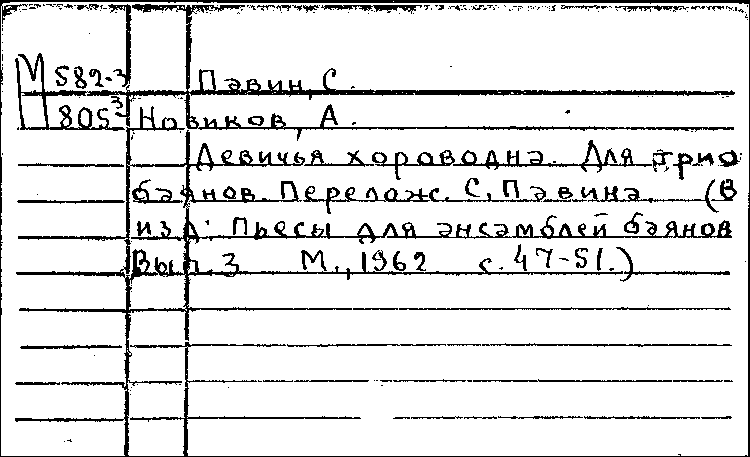 М 582-3 Павин, С.
805-3 Новиков, А.
Девичья хороводна. Для трио
баянов. Перелож. С. Павина. (В
изд: Пьесы для ансамблей баянов
Вып. 3 М., 1962 с. 47-51.)